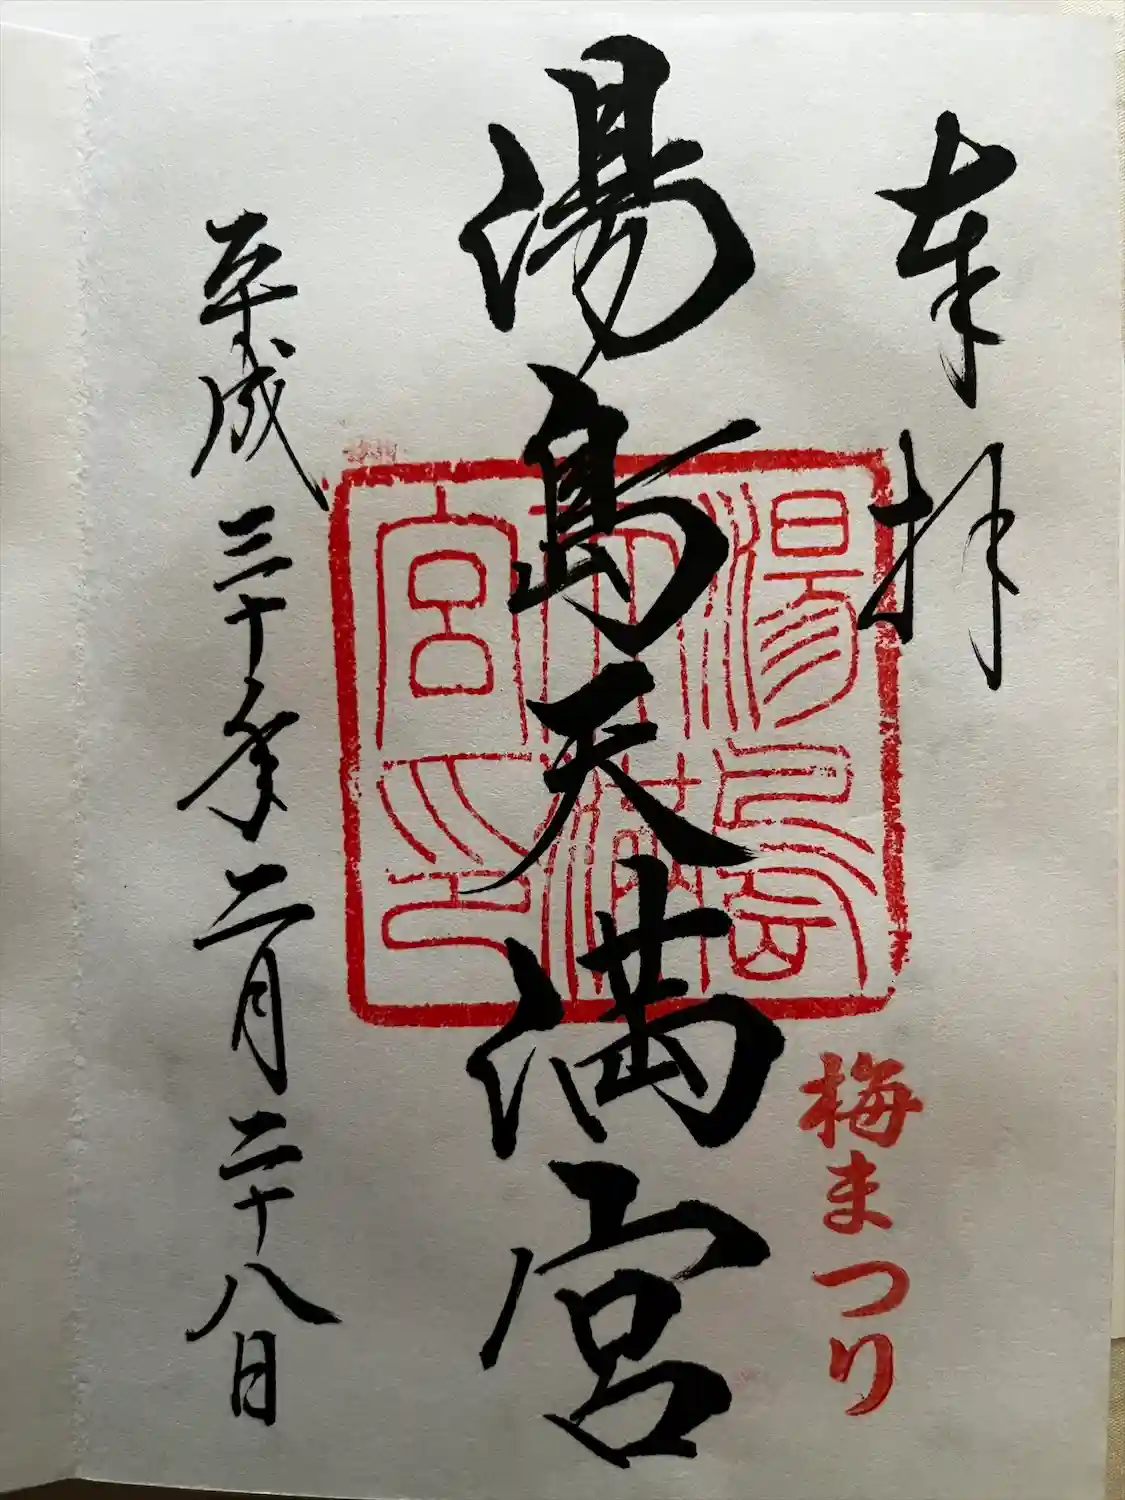 奉拝
梅まつり
湯島天満宮
湯島天満宮印
平成三十年二月二十八日